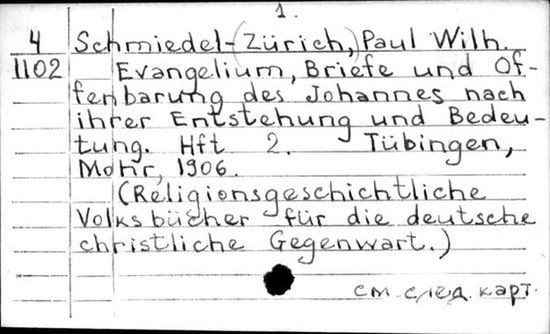 1.
4 Schmiedel-(Zürich,) Paul Wilh.
1102 Evangelium, Briefe und Of-
fenbarung des Johannes nach
ihrer Entstehung und Bedeu-
tung. Hft 2. Tübingen,
Mohr, 1906.
(Religionsgeschichtliche
Volksbücher für die deutsche
christliche Gegenwart.)
см. след. карт.